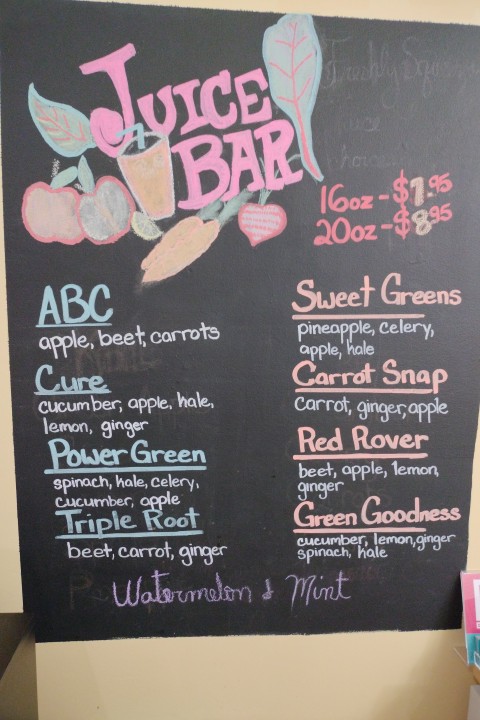 JUICE
BAR
Freshly
16oz - $7.95
20oz - $8.95
ABC
apple, beet, carrots
Cure
cucumber, apple, kale,
lemon, ginger
Power Green
spinach, kale, celery,
cucumber, apple
Triple Root
beet, carrot, ginger
Sweet Greens
pineapple, celery,
apple, kale
Carrot Snap
Carrot, ginger, apple
Red Rover
beet, apple, lemon,
ginger
Green Goodness
cucumber, lemon, ginger
spinach, kale
Watermelon & Mint